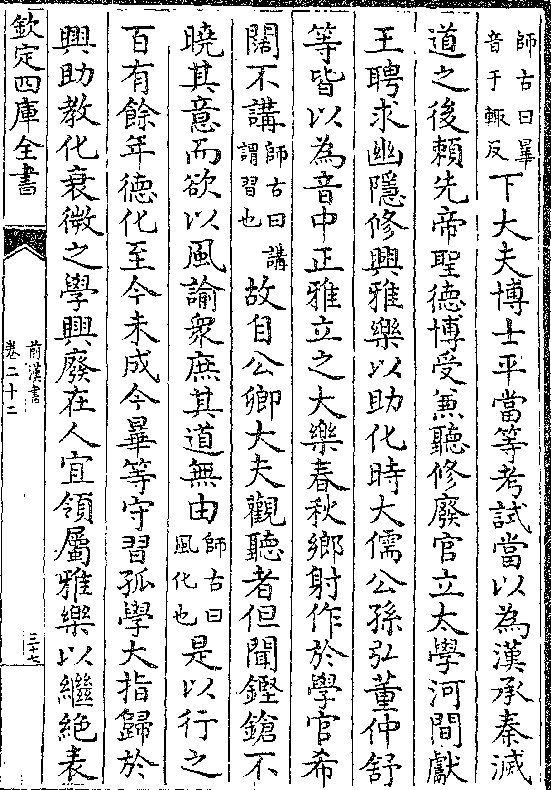 師古曰畢
音于輒反
下大夫博士平當等考試當以為漢承秦滅
道之後賴先帝聖德博受兼聽修廢官立太學河間獻
王聘求幽隱修興雅樂以助化時大儒公孫弘董仲舒
等皆以為音中正雅立之大樂春秋鄉射作於學官希
闊不講師古曰講
謂習也
故自公卿大夫觀聽者但聞鏗鎗不
曉其意而欲以風諭衆庶其道無由師古曰
風化也
是以行之
百有餘年德化至今未成今畢等守習孤學大指歸於
興助教化衰微之學興廢在人宜領屬雅樂以繼絶表
欽定四庫全書
前漢書
卷二十二
三十七